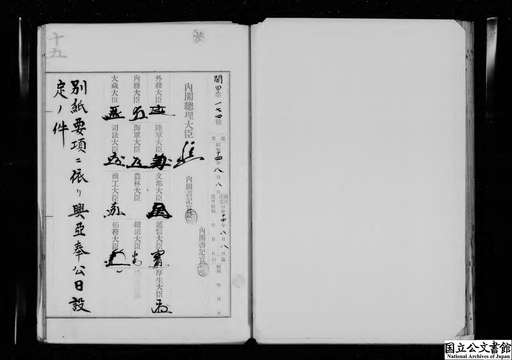 十五
閣甲第一七四號
昭和十四年八月八日
內閣總理大臣
內閣書記官長
內閣書記官
外務大臣
陸軍大臣
文部大臣
遞信大臣
厚生大臣
內務大臣
海軍大臣
農林大臣
鐵道大臣
大藏大臣
司法大臣
商工大臣
拓務大臣
別紙要項ニ依リ興亞奉公日設
定ノ件
国立公文書館
National Archives of Japan